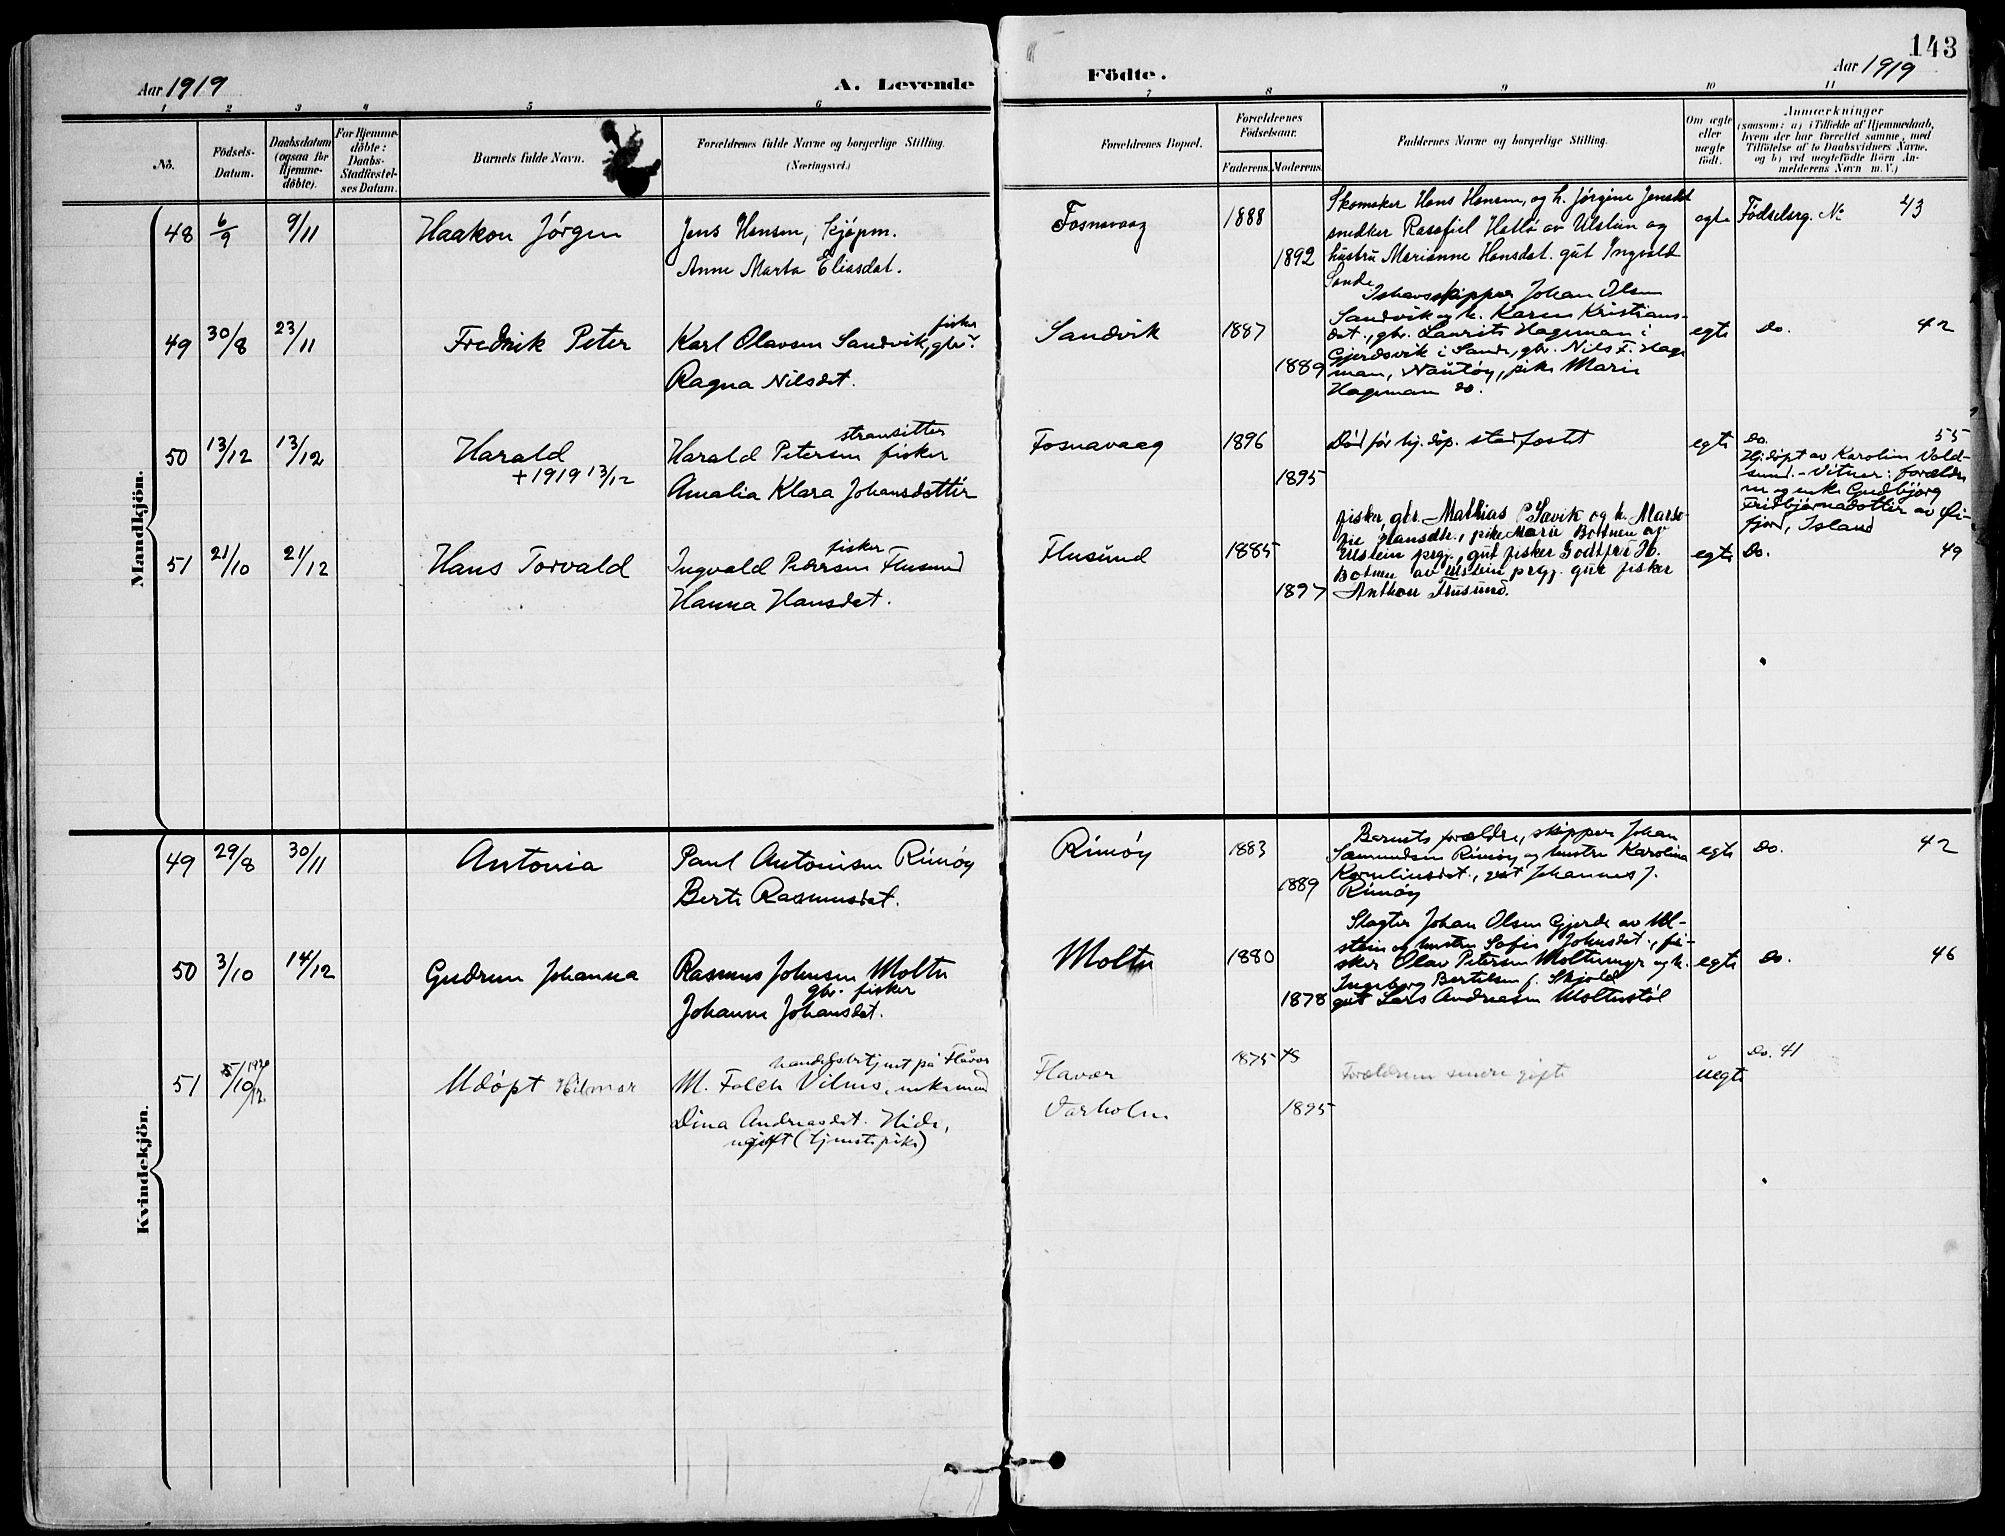 143
Aar 1919
A. Levende
Födte.
Aar 1919
1 2 3 4 5 6 7 8 9 10 11
No.
Födsels-
Datum.
Daabsdatum
(ogsaa for
Hjemme-
döbte).
For Hjemme-
döbte:
Daabs-
Stadfæstel-
ses Datum.
Barnets fulde Navn.
Forældrenes fulde Navne og borgerlige Stilling.
(Næringsvei.)
Forældrenes Bopæl.
Forældrenes
Födselsaar.
Faderens.
Moderens.
Faddernes Navne og borgerlige Stilling.
Om ægte
eller
uægte
födt.
Anmærkninger
(saasom: a) i Tilfælde af Hjemmedaab,
hvem der har forrettet samme, med
Tilföielse af to Daabsvidners Navne,
og b) ved uegtefödte Börn An-
melderens Navn m. V.)
Mandkjön.
48 6/9 9/11 Haakon Jørgen
Jens Hansen, kjøpm.
Anne Marta Eliasdat.
Fosnavaag 1888
1892
Skomaker Hans Hansen, og h. Jørgine Jensdat
snedker Rasafiel Hatlø av Ulstein og
hustru Marianne Hansdat. gut Ingvald
Sande
egte Fødselsrg. No 43
49 30/8 23/11 Fredrik Peter
fisker
Karl Olavsen Sandvik, gbr.
Ragna Nilsdat.
Sandvik 1887
1889
Ishavsskipper Johan Olsen
Sandvik og h. Karen Kristians-
dat., gbr. Laurits Hageman i
Gjerdsvik i Sande, gbr. Nils F. Hage
man, Nautøy, pike Marie
Hageman do.
egte do. 42
50 13/12 13/12 Harald
+ 1919 13/12
stransitter
Harald Petersen fisker
Amalia Klara Johansdottir
Fosnavaag 1896
1895
Død før hj. dp. stadfæstet
egte do. 55
Hj.døpt av Karolin Vold-
sund. - Vitner: forældre
ne og enke Gudbjörg
Fridbjörnadottir av Øi-
fjord, Island
51 21/10 21/12 Hans Torvald
fisker
Ingvald Pedersen Flusund
Hanna Hansdat.
Flusund 1885
1897
fisker, gbr. Mathias P. Savik og h. Marte-
pie Hansdtr., pike Marie Botnen av
Ulstein prgj., gut fisker Godtfred H.
Botnen av Ulstein prgj. gut fisker
Anthon Flusund.
egte Do. 49
Kvindekjön.
49 29/8 30/11 Antonia
Paul Antonisen Rimøy
Berte Rasmusdat.
Rimøy 1883
1889
Barnets forældre, skipper Johan
Samundsen Rimøy og hustru Karolina
Korneliusdat., gut Johannes J.
Rimøy
egte Do. 42
50 3/10 14/12 Gudrun Johanna
Rasmus Johnsen Moltu
gbr. fisker
Johanne Johansdat.
Moltu 1880
1878
Slagter Johan Olsen Gjerde av Ul-
stein og hustru Sofie Johnsdat., fi-
sker Olav Petersen Moltumyr og h.
Ingeborg Bertelsen f. Skjold
gut Lars Andreasen Moltustøl
egte Do. 46
51 5/10 Udøpt Hilmar
handelsbetjent på Flåvær
M. Falch Vilnes, enkemand
Dina Andreasdat. Hide,
ugift (tjenestepike)
Flavær
Varholm
1875
1895
Forældrene senere gifte
uegte Do. 41